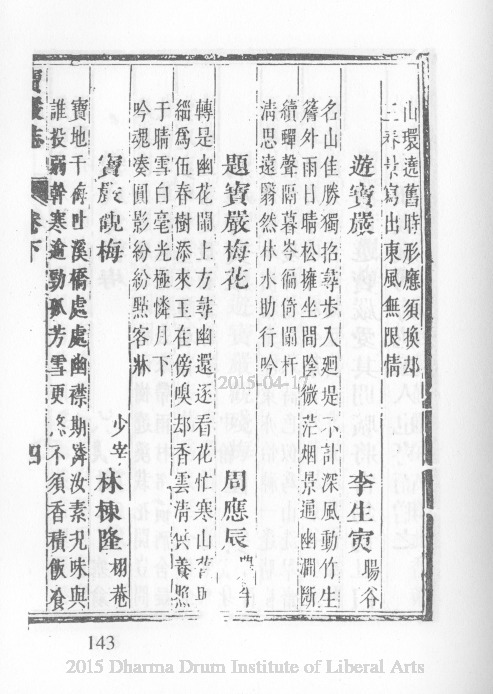 山環遶舊時形應須換却
寫出東風無限情
遊寶嚴
李生寅 暘谷
名山佳勝獨招尋步入廻堤不計深風動竹生
簷外雨日晴松擁坐間陰微茫烟景通幽澗斷
續蟬聲隔暮岑徧倚闌杆
清思遠翛然林水助行吟
題寶嚴梅花
周應辰
轉是幽花鬧上方尋幽還逐看花忙寒山
緇為伍春樹添來玉在傍嗅却香雲清供養
于晴雪白毫光極憐月下
吟魂凑圓影紛紛點客牀
寶嚴觀梅
少宰 林棟隆 栩菴
寶地千梅吐溪橋處處幽襟期齊汝素況味與
誰投弱幹寒逾勁孤芳雪更悠不須香積飯飡
寶嚴志
卷下
四
143
2015-04-17
2015 Dharma Drum Institute of Liberal Arts